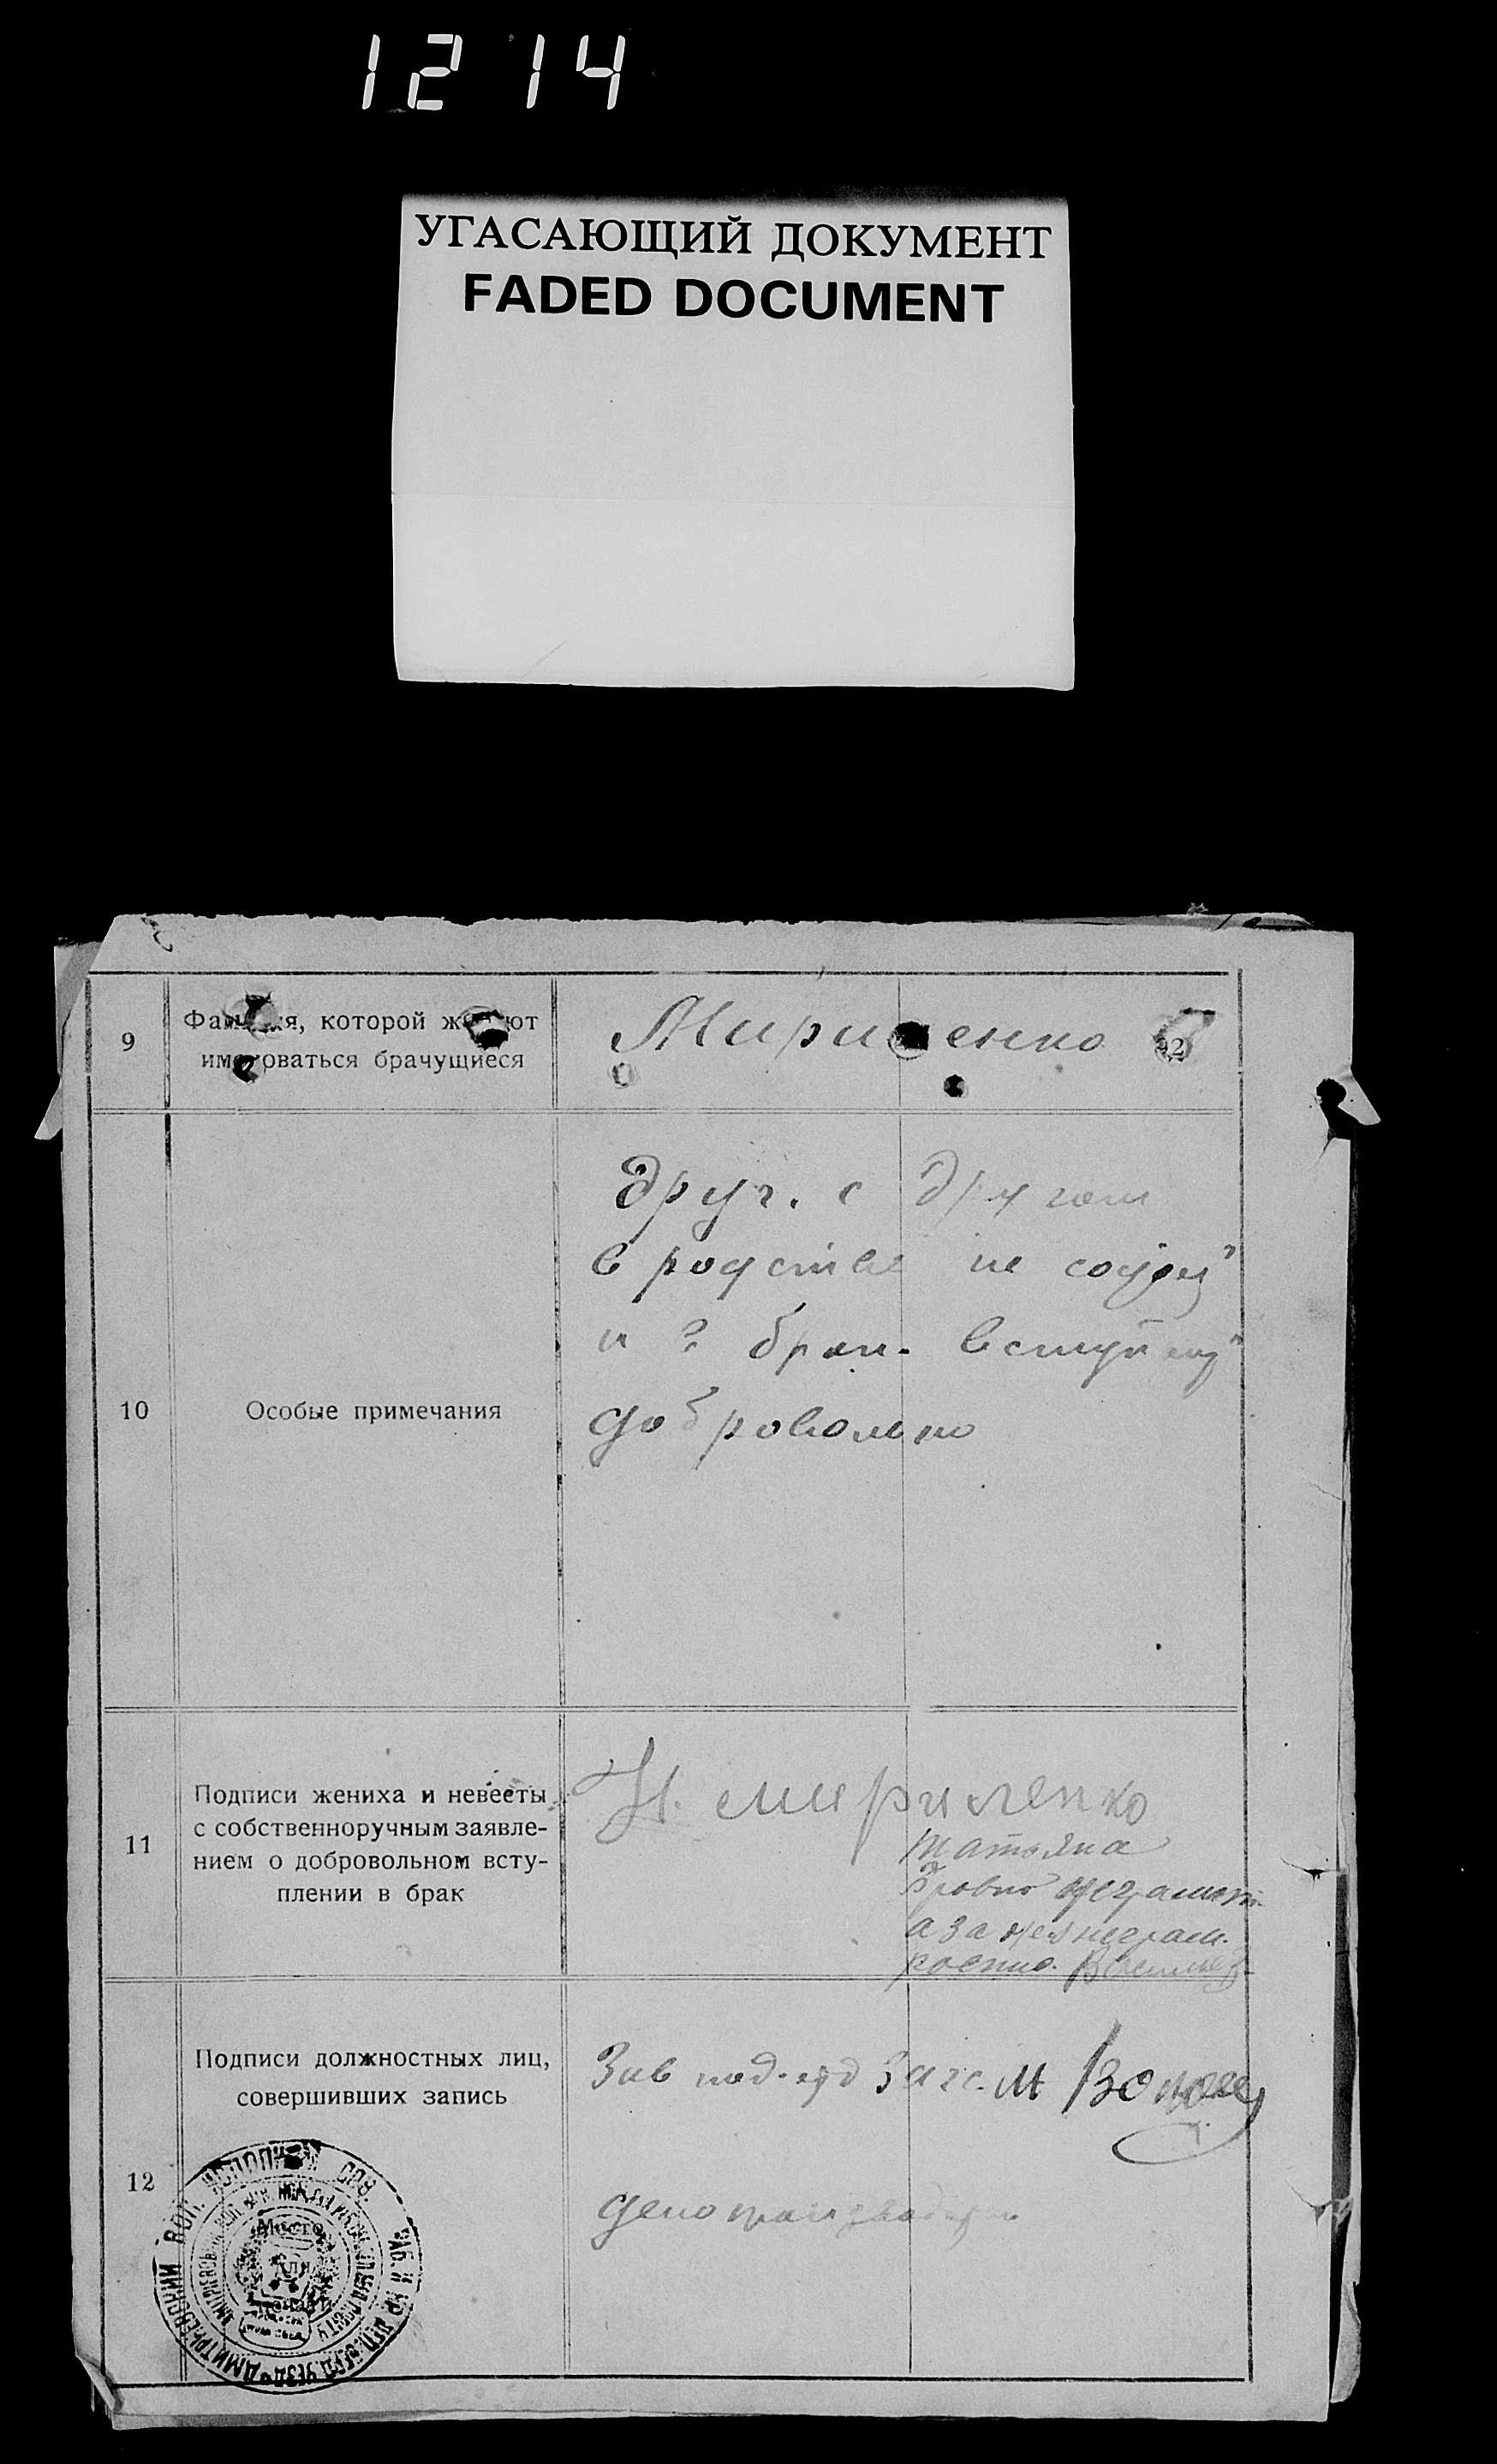 1214
УГАСАЮЩИЙ ДОКУМЕНТ
FADED DOCUMENT
9
Фамилия, которой желают
именоваться брачущиеся
Мириленко
10
Особые примечания
друг. с другом
в родстве не состоят
и в брак. вступают
добровольно
11
Подписи жениха и невесты
с собственноручным заявле-
нием о добровольном всту-
плении в брак
Н. Мириленко
Татьяна
неграмот.
а за нее неграм.
12
Подписи должностных лиц,
совершивших запись
Зав под-отд Загс. М
Делопроизводитель
Место
для
печати